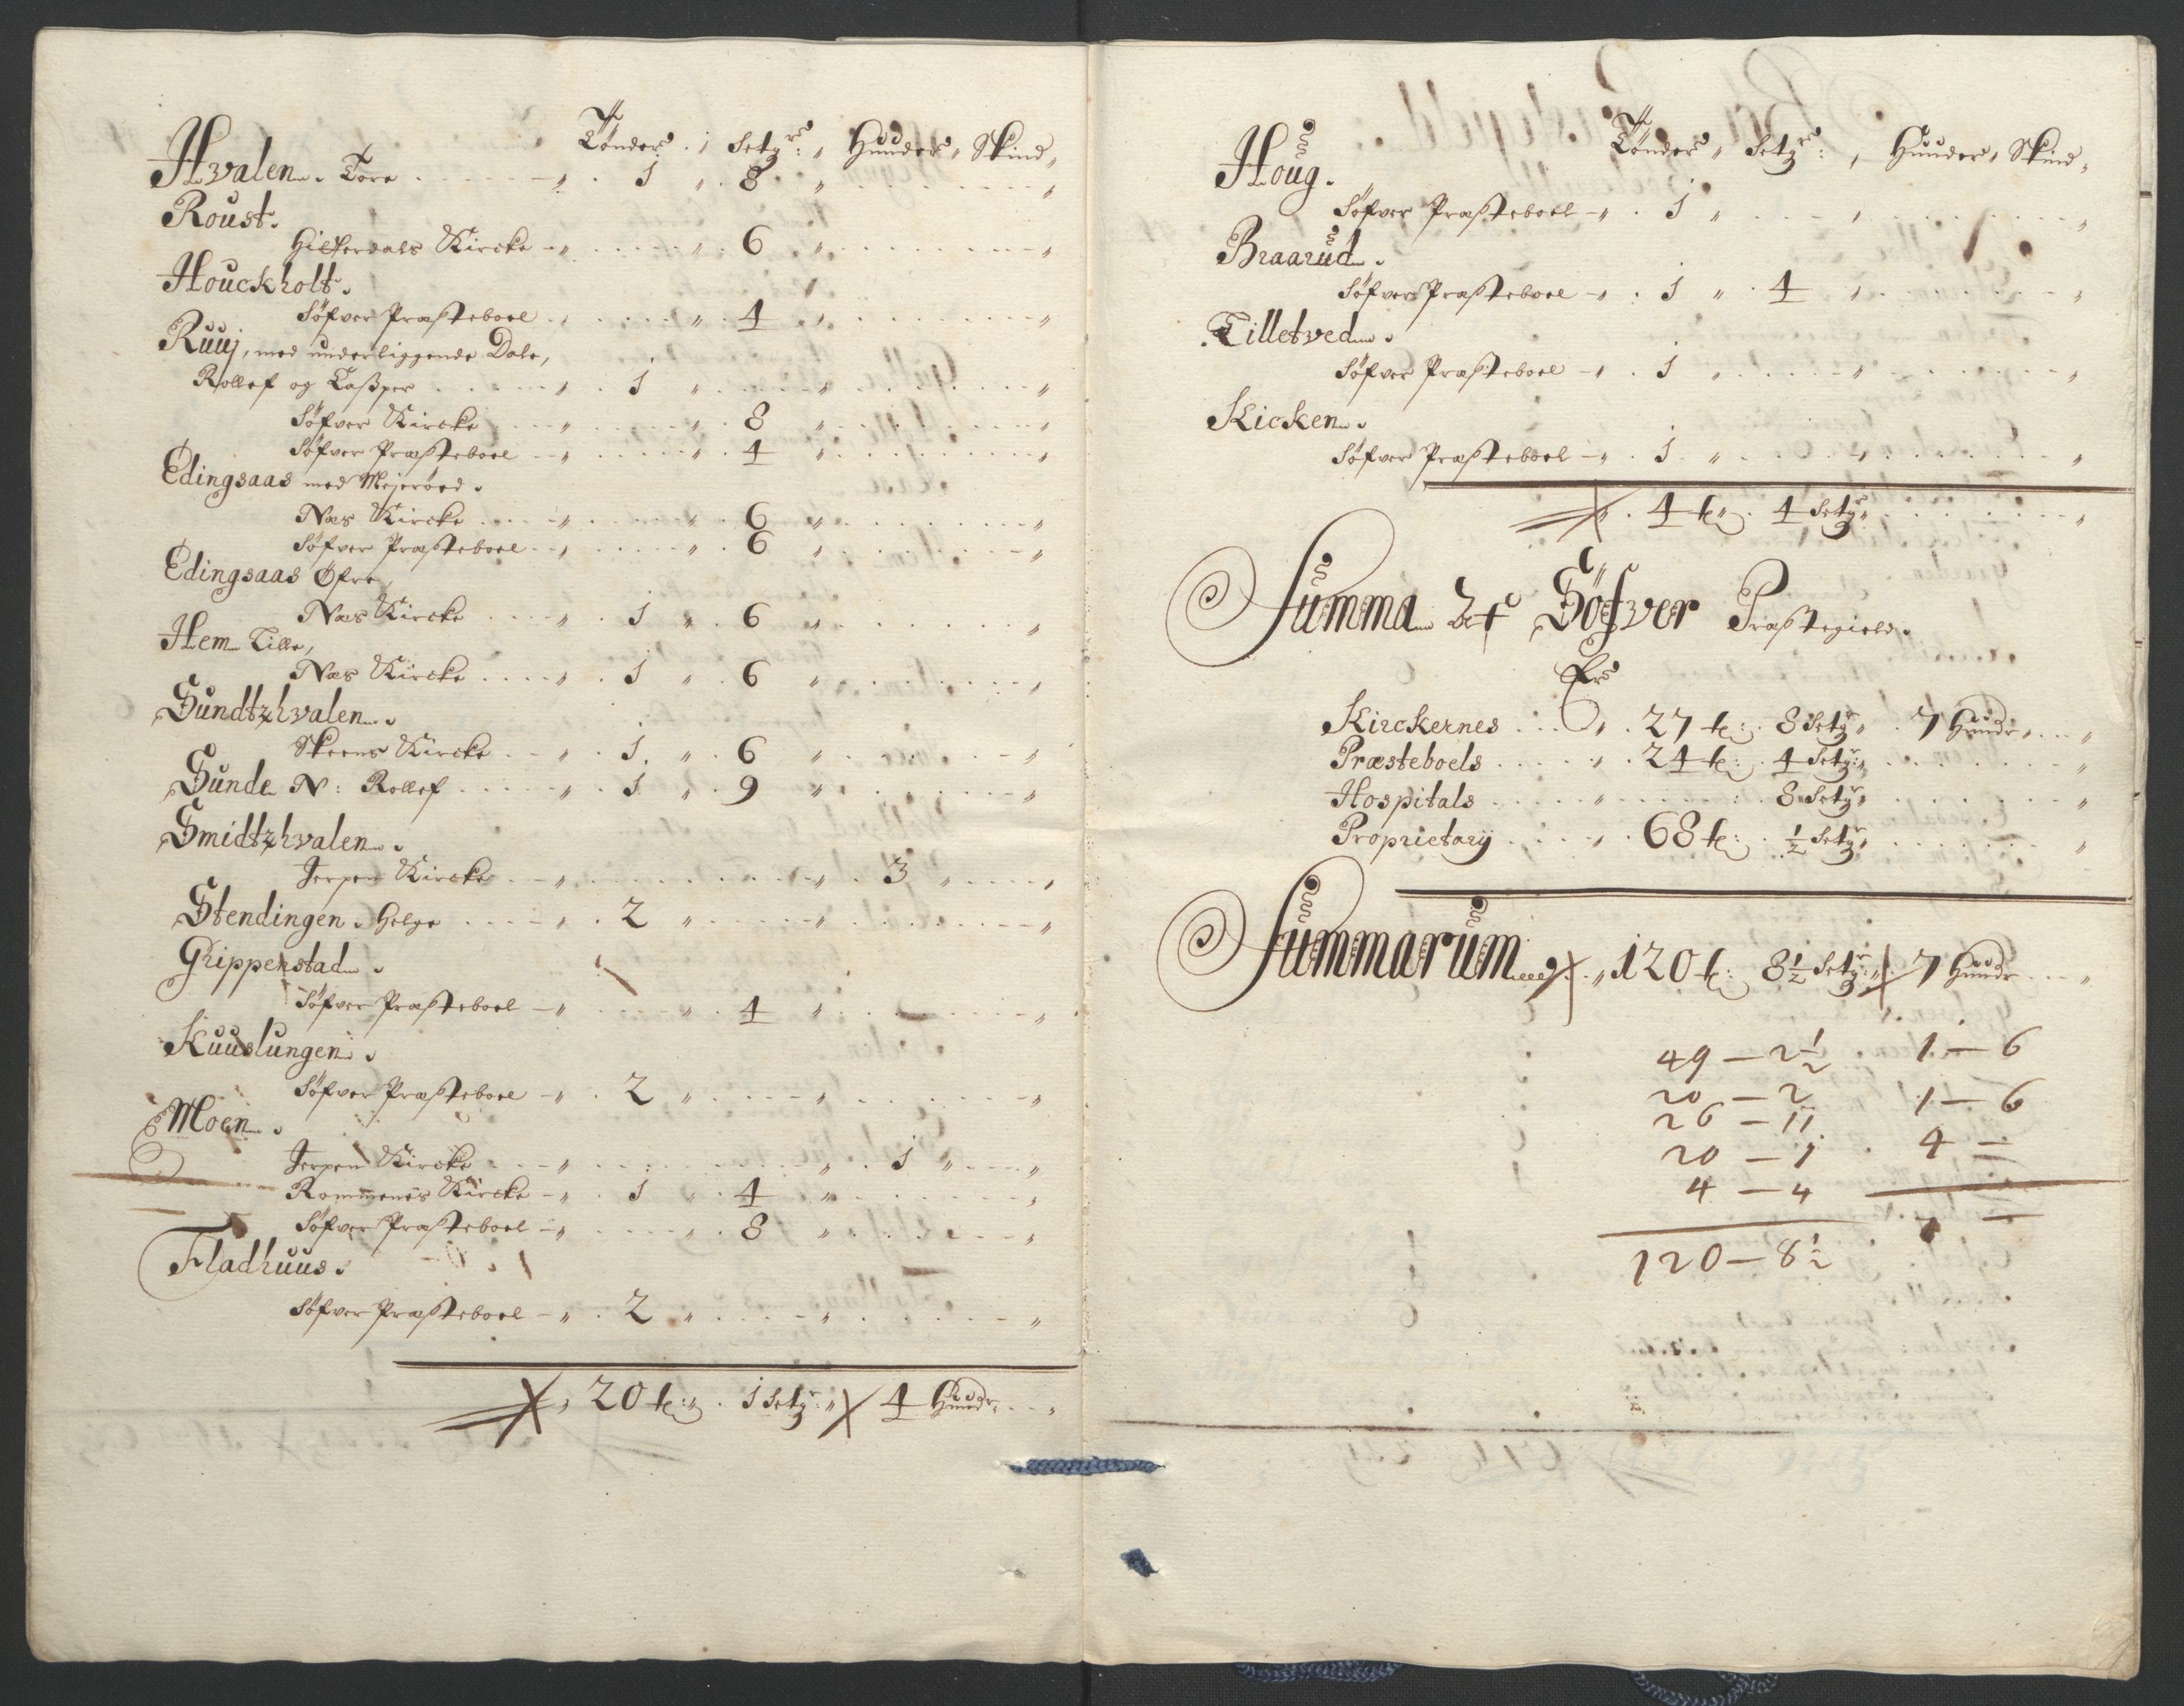 Tønder. Setgr: Huuder, Skind,
Hvalen. Tore 1 8
Roust.
Hitterdals Kircke 6
Houckholt.
Söfver Præsteboel 4
Ruuj, med underliggende Dale,
Rollef og Casper 1
Söfver Kircke 8
Söfver Præsteboel 4
Edingsaas med Mejeröed.
Næs Kircke 6
Söfver Præsteboel 6
Edingsaas Øfre,
Næs Kircke 1 6
Hem Lille,
Næs Kircke 1 6
Sundtzhvalen.
Skeens Kircke 1 6
Sunde N: Rollef 1 9
Smidtzhvalen.
Jerpen Kircke 3
Stendingen. Helge 2
Grippenstad.
Söfver Præsteboel 4
Kuuslungen.
Söfver Præsteboel 2
Moen.
Jerpen Kircke 1
Rommenes Kircke 1 4
Söfver Præsteboel 8
Fladhuus.
Söfver Præsteboel 2
20 t: 1 Setgr: 4 Huudr.
Tønder, Setgr:, Huuder, Skind,
Houg.
Söfver Præsteboel 1
Braarud.
Söfver Præsteboel 1 4
Lilletved.
Söfver Præsteboel 1
Kicken.
Söfver Præsteboel 1
4 t: 4 Setgr:
Summa af Söfver Præstegield.
Er
Kirckernes 27 t: 8 Setgr 7 Huudr
Præsteboels 24 t: 4 Setgr:
Hospitals 8 Setgr
Proprietarij 68 t: ½ Setgr
Summarum 120 t: 8½ Setgr: 7 Huudr
49 — 2½ 1 — 6
20 — 2 1 — 6
26 — 11
20 — 1 4 —
4 — 4
120 — 8½